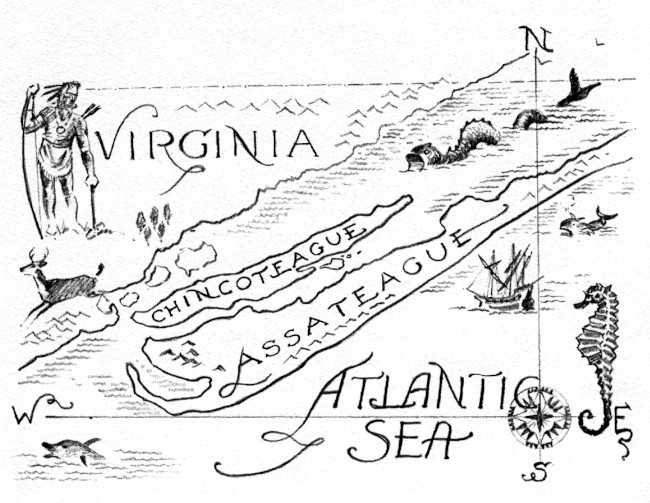 N
VIRGINIA
CHINCOTEAGUE
ASSATEAGUE
ATLANTIC
SEA
W
E
S